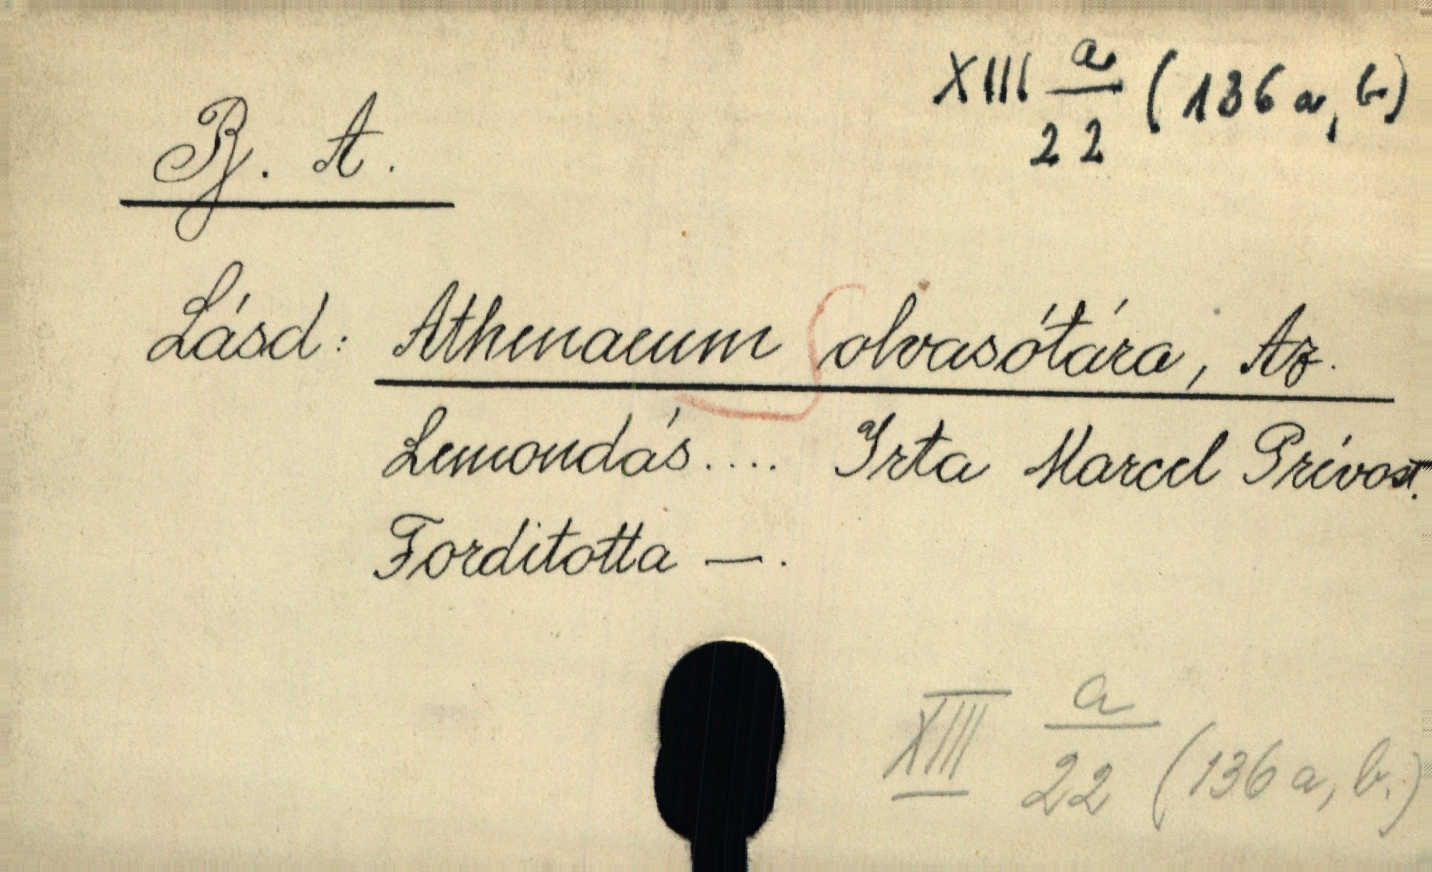 XIII a/22 (136 a, b)
Rj. A.
Lásd: Athenaeum olvasótára, Az.
Lemondás.... Irta Marcel Prévost.
Forditotta —.
XIII a/22 (136 a, b.)